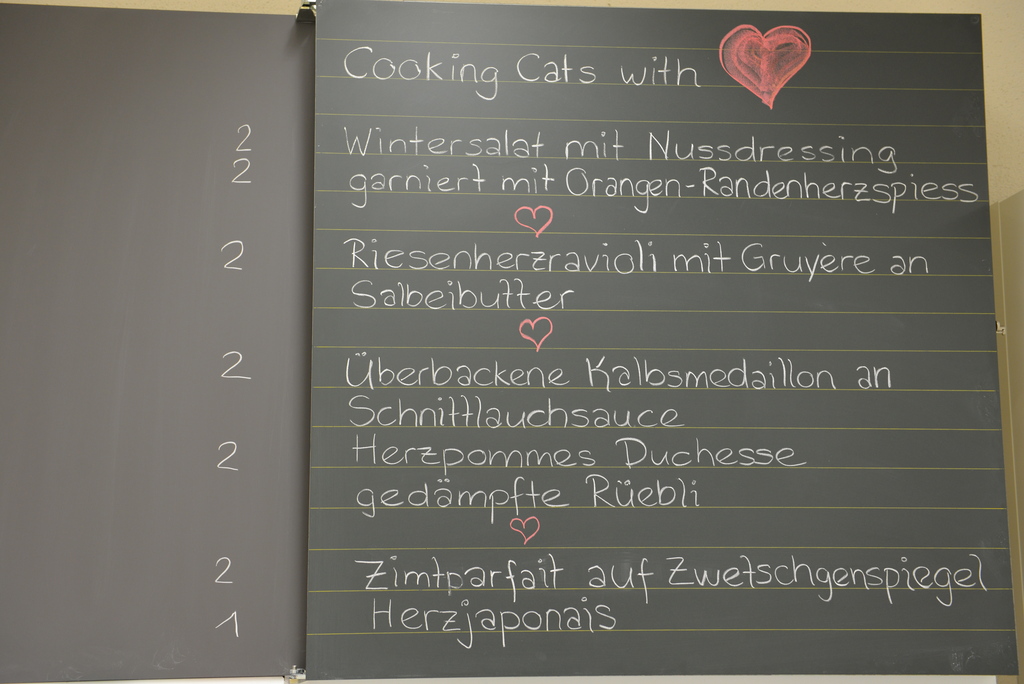 Cooking Cats with
2 Wintersalat mit Nussdressing
2 garniert mit Orangen-Randenherzspiess
2 Riesenherzravioli mit Gruyère an
Salbeibutter
2 Überbackene Kalbsmedaillon an
Schnittlauchsauce
2 Herzpommes Duchesse
gedämpfte Rüebli
2 Zimtparfait auf Zwetschgenspiegel
1 Herzjaponais